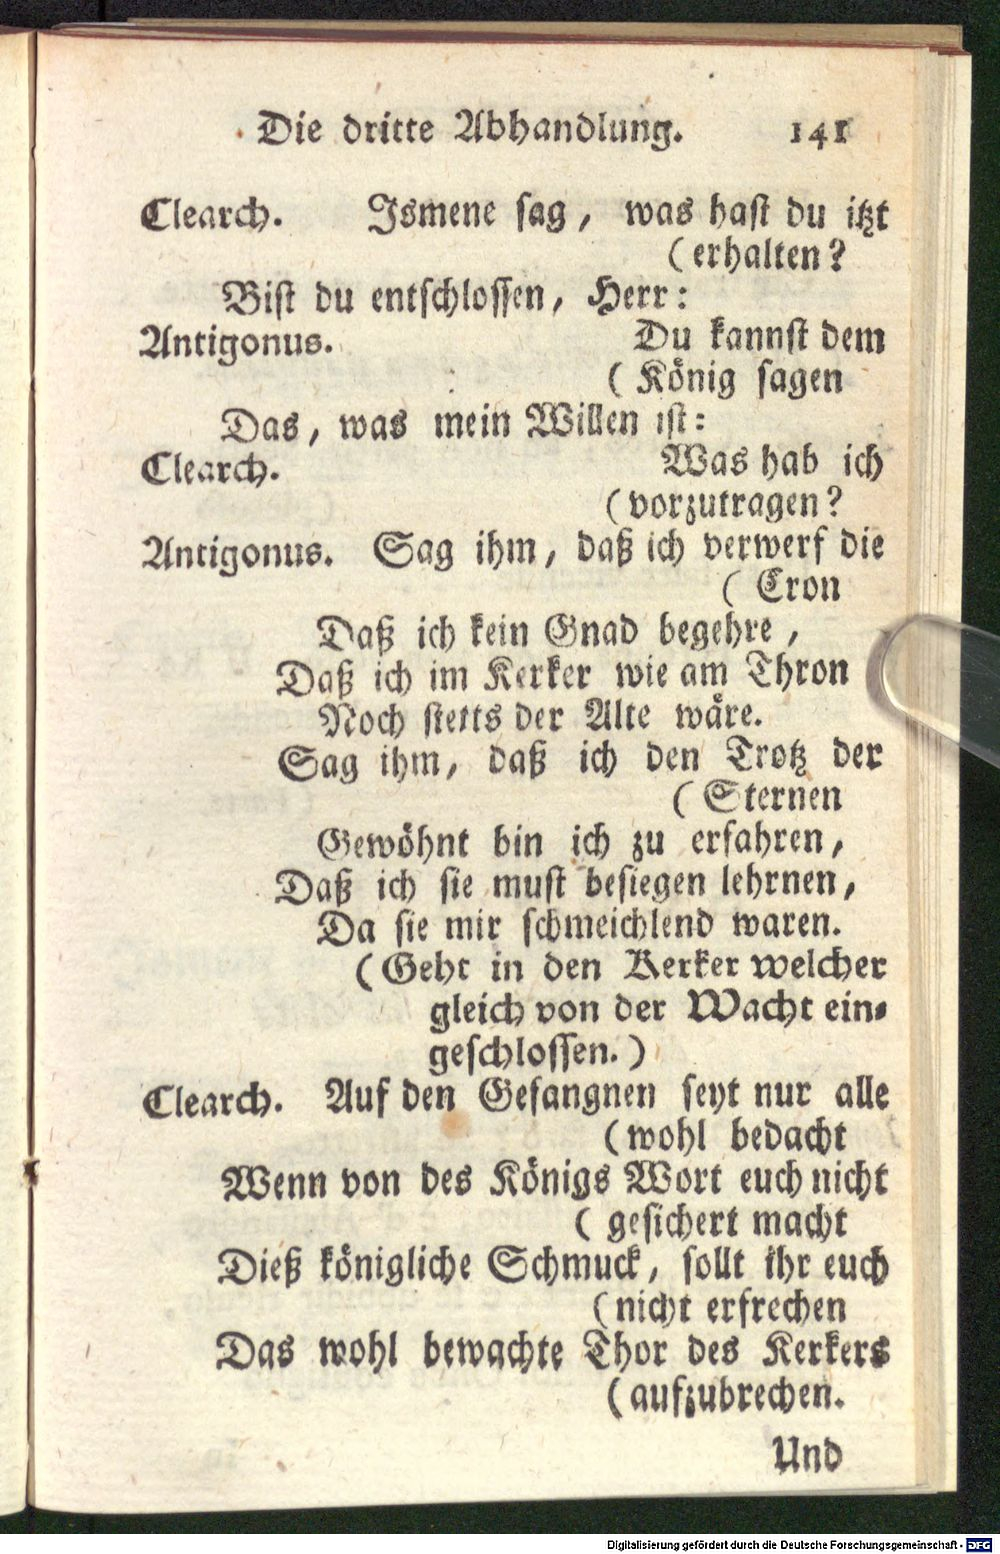 Die dritte Abhandlung. 141
Clearch. Ismene sag, was hast du itzt
(erhalten?
Bist du entschlossen, Herr:
Antigonus. Du kannst dem
(König sagen
Das, was mein Willen ist:
Clearch. Was hab ich
(vorzutragen?
Antigonus. Sag ihm, daß ich verwerf die
(Cron
Daß ich kein Gnad begehre,
Daß ich im Kerker wie am Thron
Noch stetts der Alte wäre.
Sag ihm, daß ich den Trotz der
(Sternen
Gewöhnt bin ich zu erfahren,
Daß ich sie must besiegen lehrnen,
Da sie mir schmeichlend waren.
(Geht in den Kerker welcher
gleich von der Wacht ein-
geschlossen.)
Clearch. Auf den Gefangnen seyt nur alle
(wohl bedacht
Wenn von des Königs Wort euch nicht
(gesichert macht
Dieß königliche Schmuck, sollt ihr euch
(nicht erfrechen
Das wohl bewachte Thor des Kerkers
(aufzubrechen.
Und
Digitalisierung gefördert durch die Deutsche Forschungsgemeinschaft - DFG